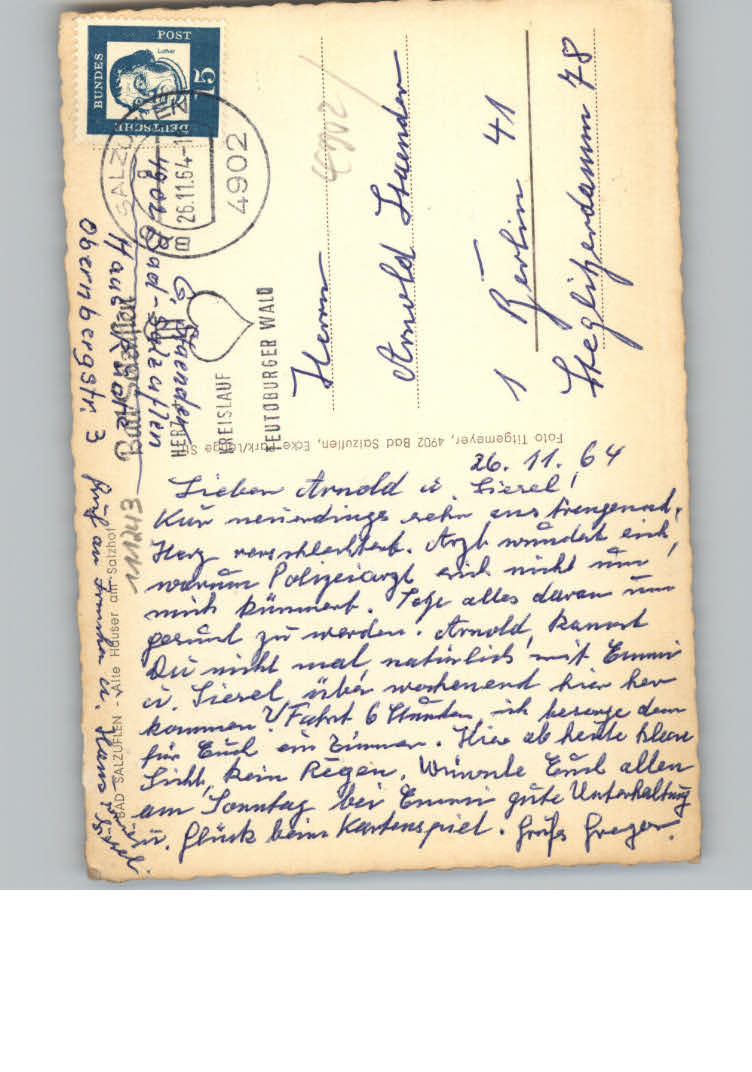 BUNDES
POST
DEUTSCHE
Luther
15
SALZUFLEN
4902
26.11.64
HERZ
KREISLAUF
TEUTOBURGER WALD
G. Staender
4902 Bad-Salzuflen
Haus
Obernbergstr. 3
Bad Salzuflen
4902
Herrn
Arnold Staender
1 Berlin 41
Steglitzerdamm 78
Foto Titgemeyer, 4902 Bad Salzuflen, Ecke Park/Lange Str.
BAD SALZUFLEN - Alte Häuser am Salzhof
26. 11. 64
Lieber Arnold u. Liesel!
Kur neuerdings sehr anstrengend.
Herz verschlechtert. Arzt wundert sich,
warum Polizeiarzt sich nicht um
mich kümmert. Setze alles daran um
gesund zu werden. Arnold, kannst
Du nicht mal natürlich mit Emmi
u. Liesel, über wochenend hier her
kommen? Fahrt 6 Stunden, ich besorge dann
für Euch ein Zimmer. Hier ab heute klare
Sicht, kein Regen. Wünsche Euch allen
am Sonntag bei Emmi gute Unterhaltung
u. Glück beim Kartenspiel. Gruß Gregor.
Gruß an u. Hans